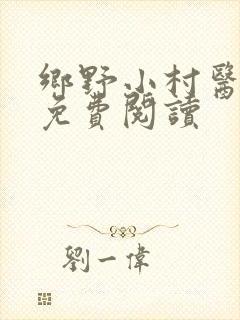 鄉野小村醫
免費閱讀
劉一偉